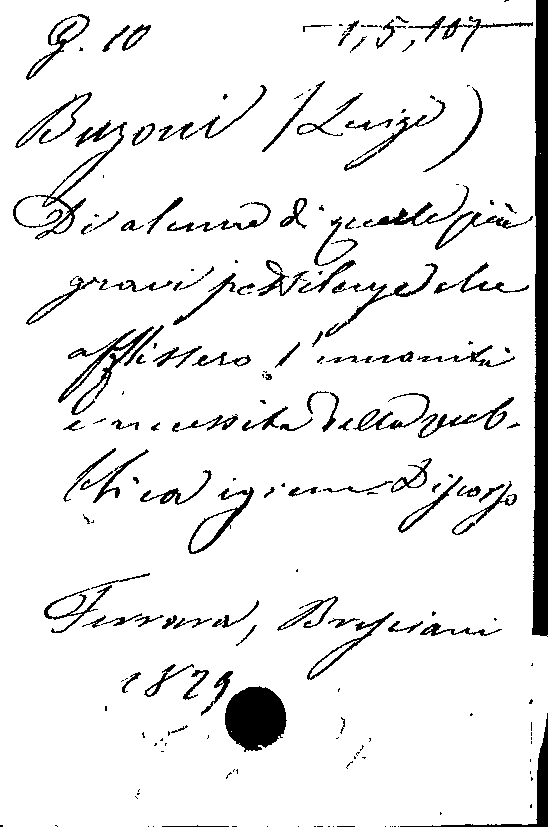 G. 10 1,5,107
Buzoni (Luigi)
Di alcune di quelle più
gravi pestilenze che
afflissero l'umanità
e necessità della pub-
blica igiene Discorso
Ferrara, Bresciani
1829